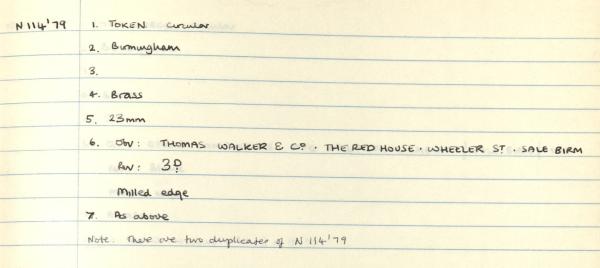 N 114'79 1. TOKEN circular
2. Birmingham
3.
4. Brass
5. 23mm
6. Obv: THOMAS WALKER & Cº · THE RED HOUSE · WHEELER Sᵀ · SALE BIRM
Rev: 3ᴰ
Milled edge
7. As above
Note: There are two duplicates of N 114'79